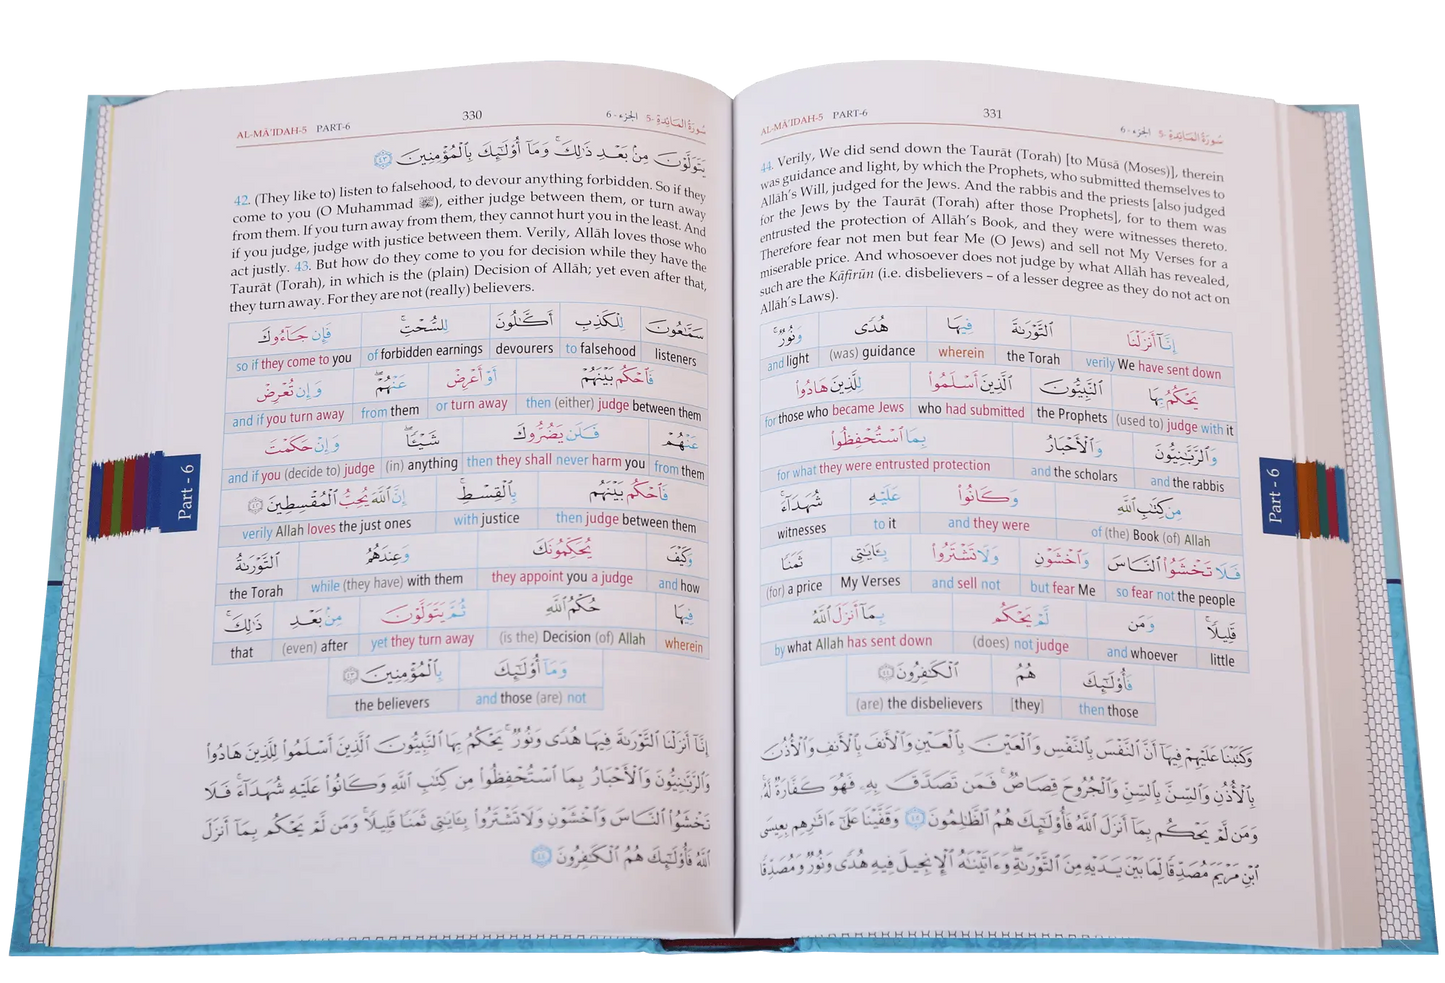 AL-MĀ'IDAH-5 PART-6 330 الجزء - ٦ سُورَةُ المَائِدَةِ -5
يَتَوَلَّوْنَ مِنۢ بَعْدِ ذَٰلِكَ ۚ وَمَآ أُو۟لَـٰٓئِكَ بِٱلْمُؤْمِنِينَ ٤٣
42. (They like to) listen to falsehood, to devour anything forbidden. So if they
come to you (O Muhammad ﷺ), either judge between them, or turn away
from them. If you turn away from them, they cannot hurt you in the least. And
if you judge, judge with justice between them. Verily, Allāh loves those who
act justly. 43. But how do they come to you for decision while they have the
Taurāt (Torah), in which is the (plain) Decision of Allāh; yet even after that,
they turn away. For they are not (really) believers.
سَمَّـٰعُونَ لِلْكَذِبِ أَكَّـٰلُونَ لِلسُّحْتِ ۚ فَإِن جَآءُوكَ
so if they come to you of forbidden earnings devourers to falsehood listeners
فَٱحْكُم بَيْنَهُمْ أَوْ أَعْرِضْ عَنْهُمْ ۖ وَإِن تُعْرِضْ
and if you turn away from them or turn away then (either) judge between them
عَنْهُمْ فَلَن يَضُرُّوكَ شَيْـًٔا ۖ وَإِنْ حَكَمْتَ
and if you (decide to) judge (in) anything then they shall never harm you from them
فَٱحْكُم بَيْنَهُم بِٱلْقِسْطِ ۚ إِنَّ ٱللَّهَ يُحِبُّ ٱلْمُقْسِطِينَ ٤٢
verily Allah loves the just ones with justice then judge between them
وَكَيْفَ يُحَكِّمُونَكَ وَعِندَهُمُ ٱلتَّوْرَىٰةُ
the Torah while (they have) with them they appoint you a judge and how
فِيهَا حُكْمُ ٱللَّهِ ثُمَّ يَتَوَلَّوْنَ مِنۢ بَعْدِ ذَٰلِكَ ۚ
that (even) after yet they turn away (is the) Decision (of) Allah wherein
وَمَآ أُو۟لَـٰٓئِكَ بِٱلْمُؤْمِنِينَ ٤٣
the believers and those (are) not
إِنَّآ أَنزَلْنَا ٱلتَّوْرَىٰةَ فِيهَا هُدًى وَنُورٌ ۚ يَحْكُمُ بِهَا ٱلنَّبِيُّونَ ٱلَّذِينَ أَسْلَمُوا۟ لِلَّذِينَ هَادُوا۟
وَٱلرَّبَّـٰنِيُّونَ وَٱلْأَحْبَارُ بِمَا ٱسْتُحْفِظُوا۟ مِن كِتَـٰبِ ٱللَّهِ وَكَانُوا۟ عَلَيْهِ شُهَدَآءَ ۚ فَلَا
تَخْشَوُا۟ ٱلنَّاسَ وَٱخْشَوْنِ وَلَا تَشْتَرُوا۟ بِـَٔايَـٰتِى ثَمَنًا قَلِيلًا ۚ وَمَن لَّمْ يَحْكُم بِمَآ أَنزَلَ
ٱللَّهُ فَأُو۟لَـٰٓئِكَ هُمُ ٱلْكَـٰفِرُونَ ٤٤
Part - 6
AL-MĀ'IDAH-5 PART-6 331 الجزء - ٦ سُورَةُ المَائِدَةِ -5
44. Verily, We did send down the Taurāt (Torah) [to Mūsā (Moses)], therein
was guidance and light, by which the Prophets, who submitted themselves to
Allāh's Will, judged for the Jews. And the rabbis and the priests [also judged
for the Jews by the Taurāt (Torah) after those Prophets], for to them was
entrusted the protection of Allāh's Book, and they were witnesses thereto.
Therefore fear not men but fear Me (O Jews) and sell not My Verses for a
miserable price. And whosoever does not judge by what Allāh has revealed,
such are the Kāfirūn (i.e. disbelievers – of a lesser degree as they do not act on
Allāh's Laws).
إِنَّآ أَنزَلْنَا ٱلتَّوْرَىٰةَ فِيهَا هُدًى وَنُورٌ ۚ
and light (was) guidance wherein the Torah verily We have sent down
يَحْكُمُ بِهَا ٱلنَّبِيُّونَ ٱلَّذِينَ أَسْلَمُوا۟ لِلَّذِينَ هَادُوا۟
for those who became Jews who had submitted the Prophets (used to) judge with it
وَٱلرَّبَّـٰنِيُّونَ وَٱلْأَحْبَارُ بِمَا ٱسْتُحْفِظُوا۟
for what they were entrusted protection and the scholars and the rabbis
مِن كِتَـٰبِ ٱللَّهِ وَكَانُوا۟ عَلَيْهِ شُهَدَآءَ ۚ
witnesses to it and they were of (the) Book (of) Allah
فَلَا تَخْشَوُا۟ ٱلنَّاسَ وَٱخْشَوْنِ وَلَا تَشْتَرُوا۟ بِـَٔايَـٰتِى ثَمَنًا
(for) a price My Verses and sell not but fear Me so fear not the people
قَلِيلًا ۚ وَمَن لَّمْ يَحْكُم بِمَآ أَنزَلَ ٱللَّهُ
by what Allah has sent down (does) not judge and whoever little
فَأُو۟لَـٰٓئِكَ هُمُ ٱلْكَـٰفِرُونَ ٤٤
(are) the disbelievers [they] then those
وَكَتَبْنَا عَلَيْهِمْ فِيهَآ أَنَّ ٱلنَّفْسَ بِٱلنَّفْسِ وَٱلْعَيْنَ بِٱلْعَيْنِ وَٱلْأَنفَ بِٱلْأَنفِ وَٱلْأُذُنَ
بِٱلْأُذُنِ وَٱلسِّنَّ بِٱلسِّنِّ وَٱلْجُرُوحَ قِصَاصٌ ۚ فَمَن تَصَدَّقَ بِهِۦ فَهُوَ كَفَّارَةٌ لَّهُۥ ۚ
وَمَن لَّمْ يَحْكُم بِمَآ أَنزَلَ ٱللَّهُ فَأُو۟لَـٰٓئِكَ هُمُ ٱلظَّـٰلِمُونَ ٤٥ وَقَفَّيْنَا عَلَىٰٓ ءَاثَـٰرِهِم بِعِيسَى
ٱبْنِ مَرْيَمَ مُصَدِّقًا لِّمَا بَيْنَ يَدَيْهِ مِنَ ٱلتَّوْرَىٰةِ ۖ وَءَاتَيْنَـٰهُ ٱلْإِنجِيلَ فِيهِ هُدًى وَنُورٌ وَمُصَدِّقًا
Part - 6